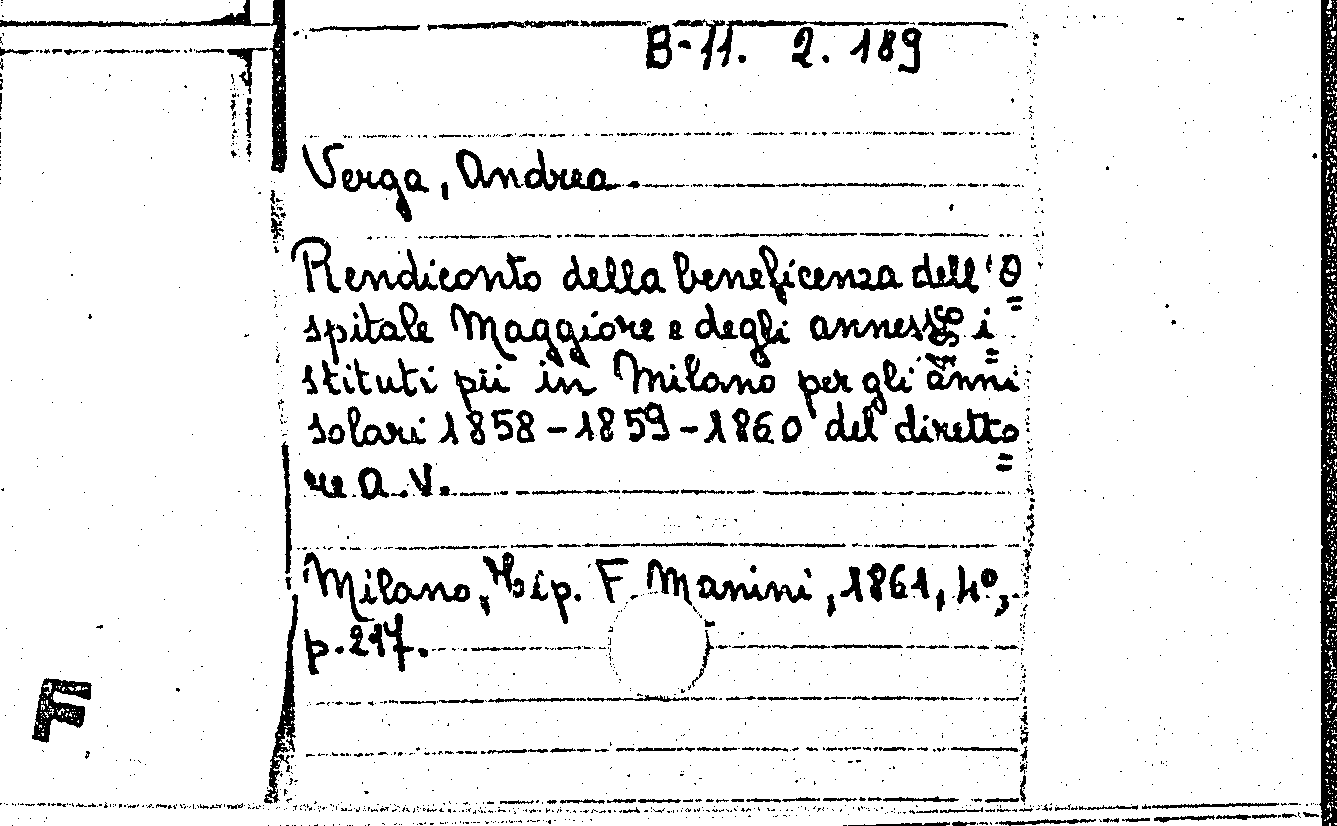 B-11. 2. 189
Verga, Andrea.
Rendiconto della beneficenza dell'O=
spitale Maggiore e degli annessi i=
stituti pii in Milano per gli anni
solari 1858-1859-1860 del diretto=
re A.V.
Milano, Tip. F. Manini, 1861, 4º,
p. 217.
F